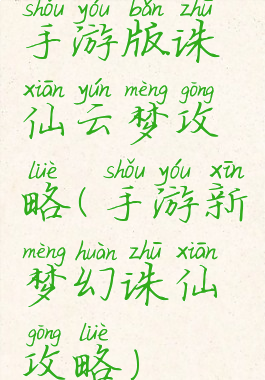 shǒu yóu bǎn zhū
手游版诛
xiān yún mèng gōng
仙云梦攻
lüè shǒu yóu xīn
略(手游新
mèng huàn zhū xiān
梦幻诛仙
gōng lüè
攻略)